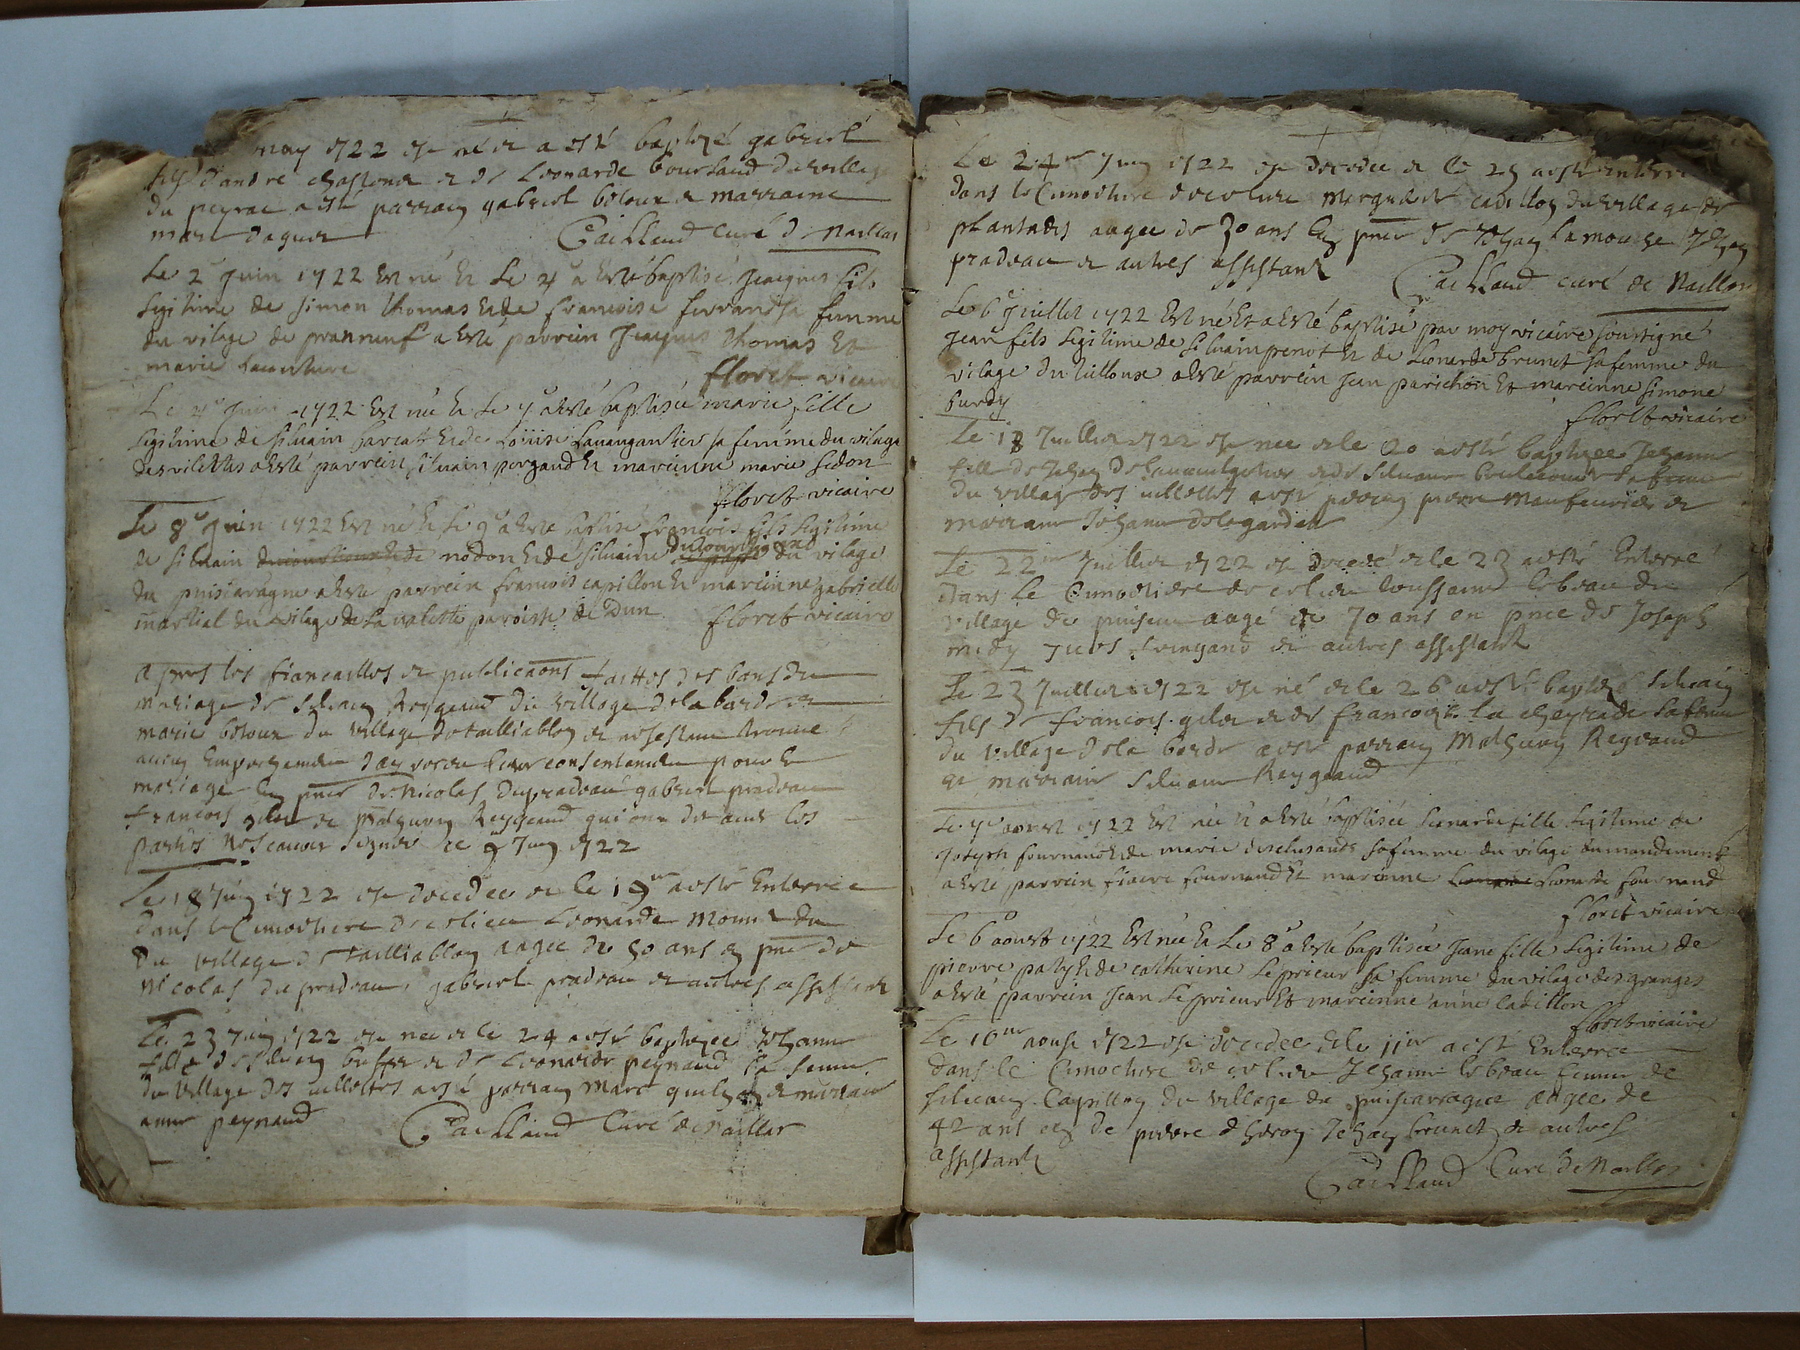 may 1722 est né et a esté baptizé gabriel
fils d'andré chastenet et de Leonarde boursaud du village
du peyrat a esté parrain gabriel betoux et marraine
marie daguet Cailland curé de Naillat
Le 2e Juin 1722 Est né Et Le 4e a Esté baptisé Jacques fils
Legitime de simon thomas Et de francoise ferrand sa femme
du vilage de pranneuf a esté parrein Jacques thomas Et
marie
floret vicaire
Le Juin 1722 Est née Et Le 7e a Esté baptisée marie fille
Legitime de siluain bariat Et de Louise Lauaugautier sa femme du vilage
des vilettes a Esté parrein siluain Et mareinne marie sidon
floret vicaire
Le 8e Juin 1722 Est né Et Le 9e a Esté baptisé francois fils Legitime
de siluain nodon Et de siluaine du vilage
du puisiaragne a Esté parrein francois capillon Et mareinne gabrielle
martial du vilage de La valette paroisse de Dun floret vicaire
apres les fiancailles et publicaons faittes des bans du
mariage de Siluain Reygeaud du village de la barde et
marie betoux du village de tailliablon et ne sestant trouué
aucun Empeschement Jay receu leur consentement pour le
mariage En pnce de Nicolas dupradeau gabriel pradeau
francois gilet et Mathurin Reygeaud qui ont dit auec les
parties ne scauoir signer ce 9 Juin 1722
Le 18 Juin 1722 est decedee et le 19me a esté Enterree
dans le Cimethiere de ce lieu Leonarde du
du village de tailliablon aagee de 50 ans En pnce de
Nicolas du pradeau, gabriel pradeau et autres assistants
Le 23 Juin 1722 est née et le 24 a esté baptizee Jehanne
fille de Siluain et de Leonarde peynaud sa femme
du village des uillettes a esté parrain Marc et marraine
anne peynaud Cailland Curé de Naillat
Le 24me Juin 1722 est decedee et le 25 a esté
dans le Cimethiere de ce lieu Margueritte cadillon du village de
plantadis aagee de 30 ans En pnce de Jehan Lamouche Jehan
pradeau et autres assistants Cailland curé de Naillat
Le 6e Juillet 1722 Est né Et a Esté baptisé par moy vicaire soussigné
Jean fils Legitime de siluain penot Et de Leonarde brunet sa femme du
vilage du tilloux a Esté parrein Jean parichon Et mareinne simone
burdy
floret vicaire
Le 18 Juillet 1722 est nee et le 20 a esté baptizee Jehanne
fille de Jehan de Lauaugautier et de Siluaine sa femme
du village des uillettes a esté parrain pierre et
marraine Jehanne delagarde
Le 22me Juillet 1722 est decedé et le 23 a esté Enterré
dans Le Cimethiere de ce lieu toussaint lebeau du
village de aagé de 70 ans en pnce de Joseph
midy et autres assistants
Le 23 Juillet 1722 est né et le 26 a esté baptizé Siluain
fils de francois gilet et de francoize La cheyrade sa femme
du village de la barde a esté parrain Mathurin Reygeaud
et marraine Siluaine Reygeaud
Le aoust 1722 Est née Et a Esté baptisée Leonarde fille Legitime de
Joseph fournaud Et de marie sa femme du vilage du mandement
a Esté parrein fiacre fournaud Et mareinne Leonarde fournaud
floret vicaire
Le 6e aoust 1722 Est née Et Le 8e a Esté baptisée Jeane fille Legitime de
pierre paty Et de catherine Leprieur sa femme du vilage des granges
a Esté parrein Jean Leprieur Et mareinne anne cadillon
floret vicaire
Le 10me aoust 1722 est decedee et le 11me a esté Enterree
dans le Cimethiere de ce lieu Jehanne lebeau femme de
siluain Capillon du village de puisiaragne aagee de
42 ans en pnce de pierre Jehan brunet et autres
assistants
Cailland Curé de Naillat